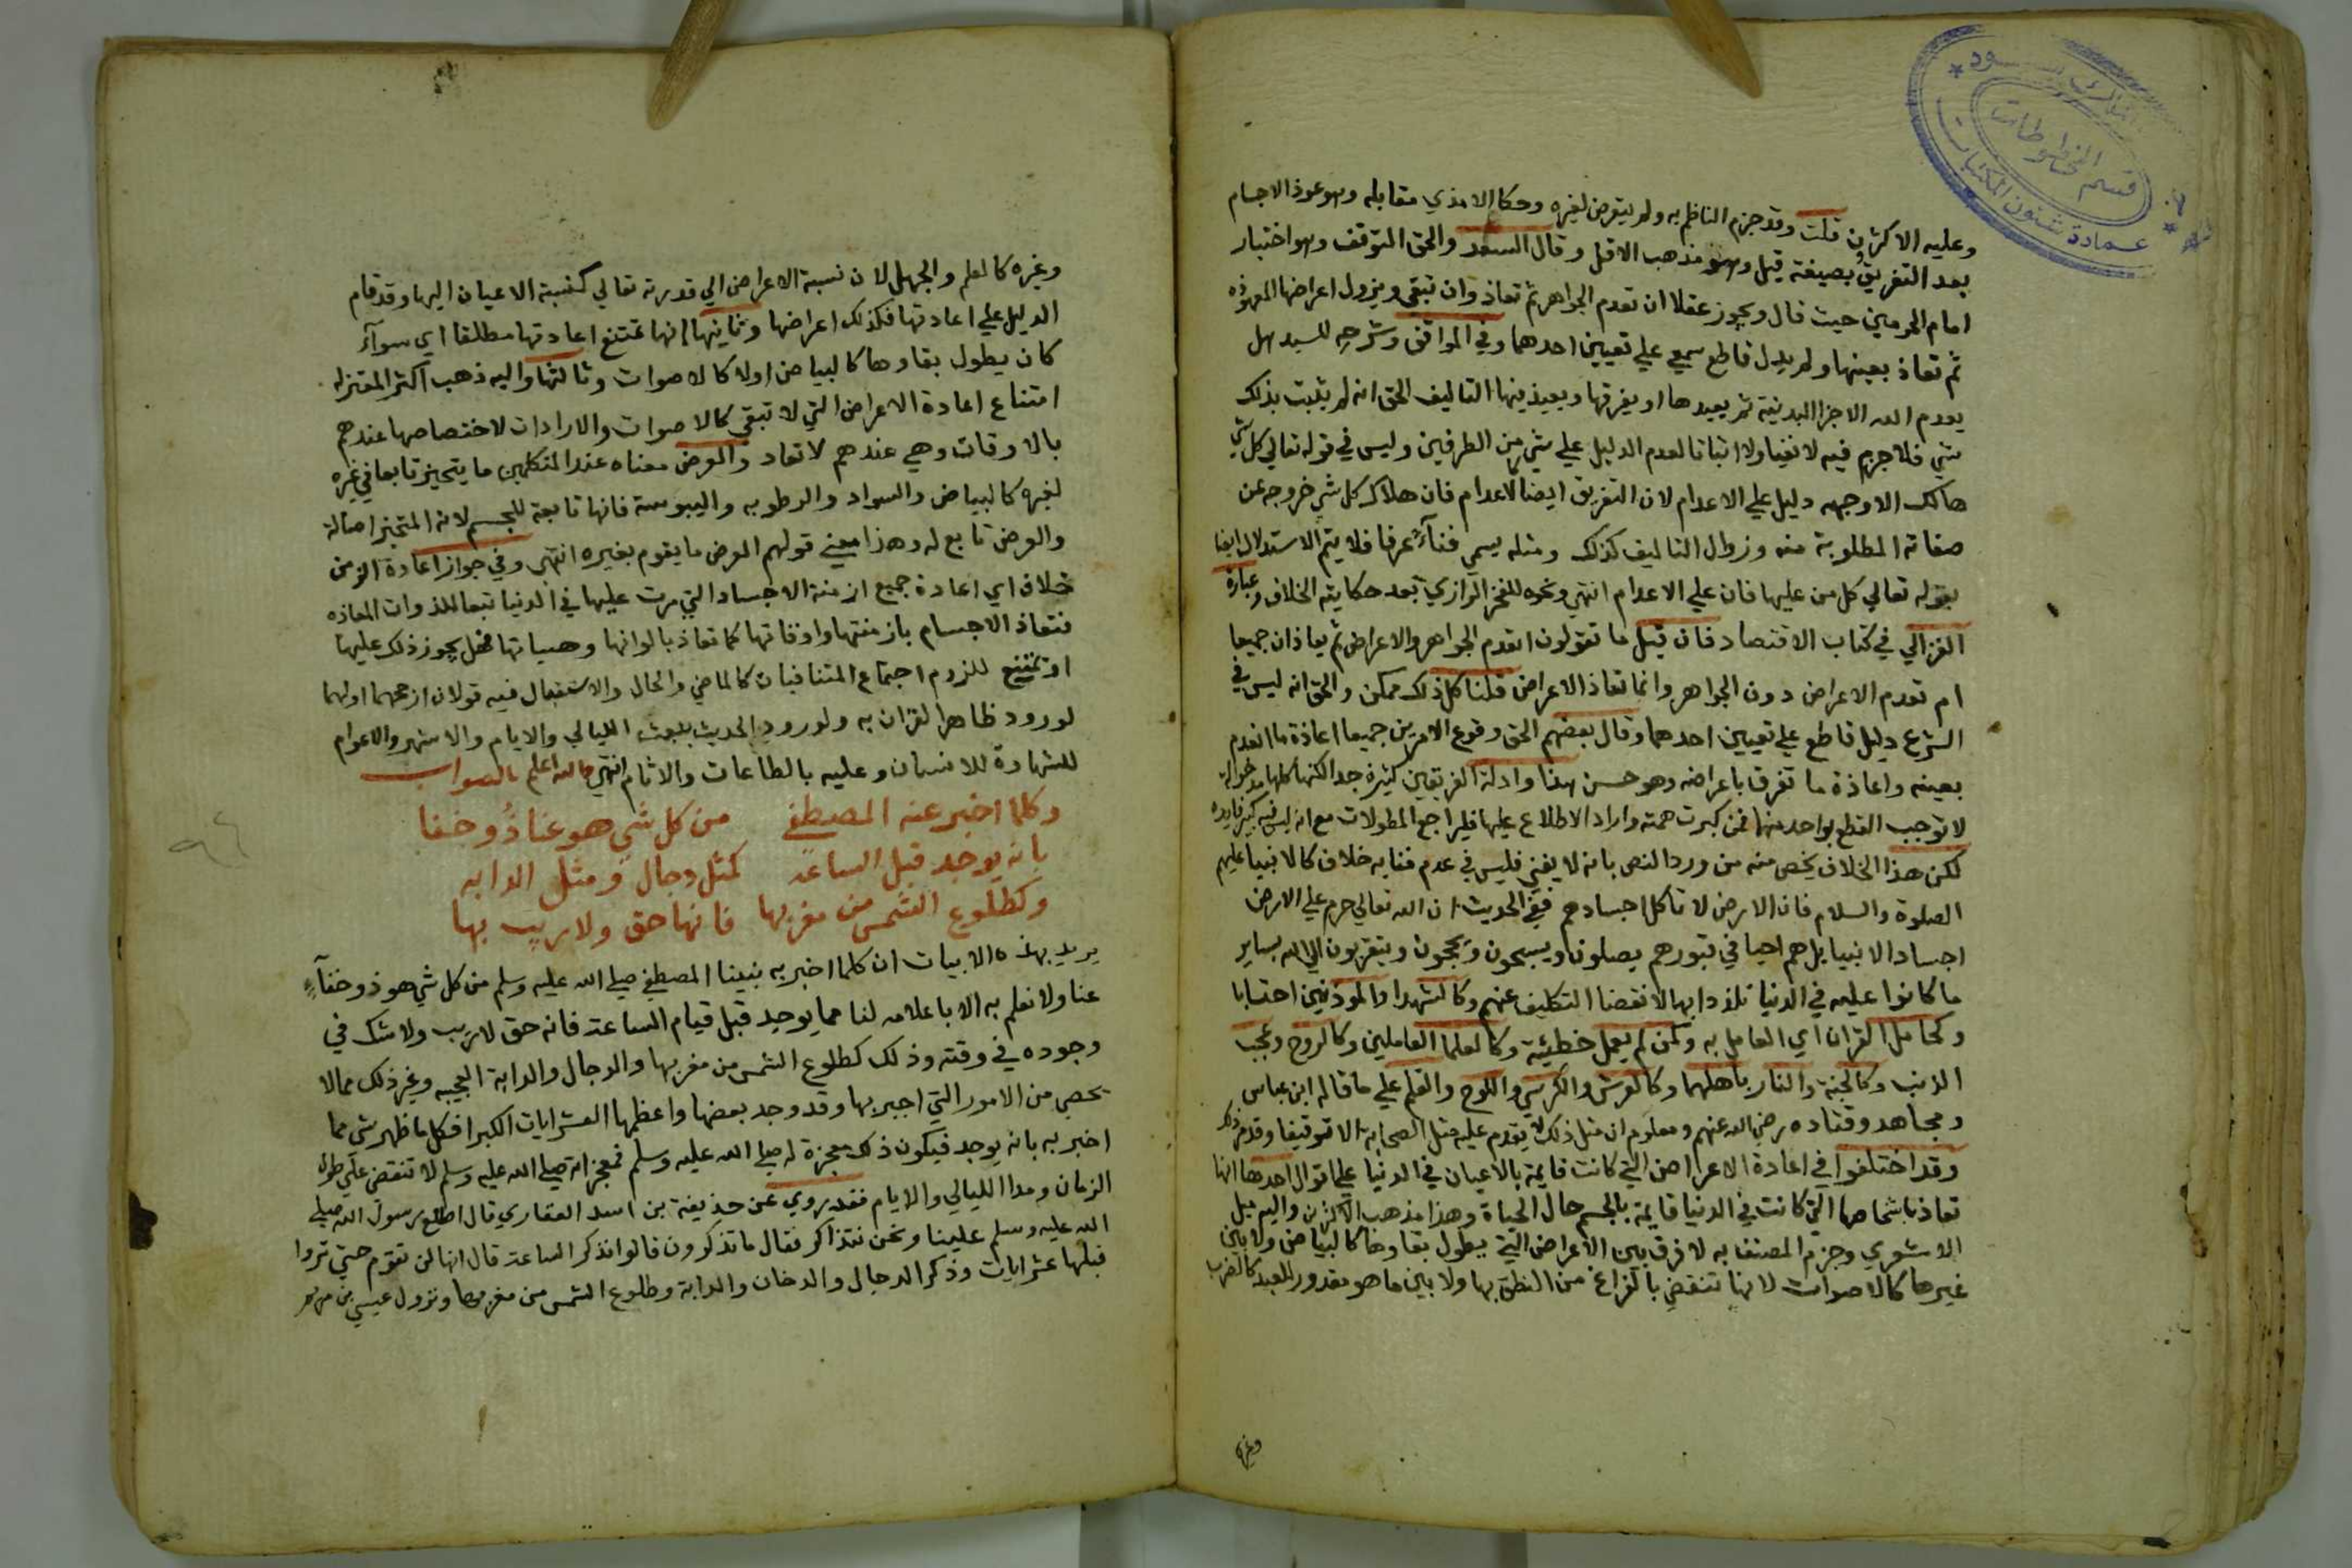 وعليه الاكثرون قلت وقد جزم الناظم به ولم يتعرض لغيره وحكا الامدي مقابله وهو عوذ الاجسام
بعد التفريق بصيغة قيل وهو مذهب الاقل وقال السعد والحق التوقف وهو اختيار
امام الحرمين حيث قال ويجوز عقلا ان تعدم الجواهر ثم تعاذ وان تبقى ويزول اعراضها المعهوذه
ثم تعاذ بعينها ولم يدل قاطع سمعي علي تعيين احدهما وفي المواقف وشرحه للسيد هل
يعدم الله الاجزا البدنية ثم يعيدها او يفرقها ويعيذ فيها التاليف الحق انه لم يثبت بذلك
شي فلا جزم فيه لا نفيا ولا اثباتا لعدم الدليل علي شي من الطرفين وليس في قوله تعالي كل شي
هالك الا وجهه دليل علي الاعدام لان التفريق ايضا كالاعدام فان هلاك كل شي خروجه عن
صفاته المطلوبة منه وزوال التاليف كذلك ومثله يسمي فنآء عرفا فلا يتم الاستدلال ايضا
بقوله تعالي كل من عليها فان علي الاعدام انتهي ونحوه للفخر الرازي بعد حكايته الخلاف وعبارة
الغزالي في كتاب الاقتصاد فان قيل ما تقولون اتعدم الجواهر والاعراض ثم يعاذان جميعا
ام تعدم الاعراض دون الجواهر وانما تعاذ الاعراض قلنا كل ذلك ممكن والحق انه ليس في
الشرع دليل قاطع علي تعيين احدهما وقال بعضهم الحق وقوع الامرين جميعا اعاذة ما انعدم
بعينه واعاذة ما تفرق باعراضه وهو حسن هذا وادلة الفريقين كثيرة جدا لكنها كلها مدخولة
لا توجب القطع بواحد منها فمن كبرت همته واراد الاطلاع عليها فليراجع المطولات مع انه ليس فيه كبير فايده
لكن هذا الخلاف يخص منه من ورد النص بانه لا يفني فليس في عدم فنايه خلاف كالانبيا عليهم
الصلوة والسلام فان الارض لا تاكل اجسادهم ففي الحديث ان الله تعالي حرم علي الارض
اجساد الانبيا بل هم احيا في قبورهم يصلون ويسبحون ويحجون ويتقربون الي الله بساير
ما كانوا عليه في الدنيا تلذذا بها لا نقضا التكليف عنهم وكالشهدا والموذنين احتسابا
وكحامل القران اي العامل به وكمن لم يعمل خطيئة وكالعلما العاملين وكالروح وعجب
الذنب وكالجنة والنار باهلهما وكالعرش والكرسي واللوح والقلم علي ما قاله ابن عباس
ومجاهد وقتاده رضي الله عنهم ومعلوم ان مثل ذلك لا يقدم عليه مثل الصحابة الا توقيفا وقدم ذلك
وقد اختلفوا في اعادة الاعراض التي كانت قايمة بالاعيان في الدنيا علي اقوال احدها انها
تعاذ باشخاصها التي كانت في الدنيا قايمة بالجسم حال الحياة وهذا مذهب الاكثرين واليه ميل
الاشعري وجزم المصنف به لا فرق بين الاعراض التي يطول بقاوها كالبياض ولا بين
غيرها كالاصوات لانها تنقضي بالفراغ من النطق بها ولا بين ما هو مقدور للعبد كالضرب
وغيره
وغيره كالعلم والجهل لان نسبة الاعراض الي قدرته تعالي كنسبة الاعيان اليها وقد قام
الدليل علي اعادتها فكذلك اعراضها وثانيها انها تمتنع اعادتها مطلقا اي سوآء
كان يطول بقاوها كالبياض اولا كالاصوات وثالثها واليه ذهب اكثر المعتزله
امتناع اعادة الاعراض التي لا تبقي كالاصوات والارادات لاختصاصها عندهم
بالاوقات وهي عندهم لا تعاد والعرض معناه عند المتكلمين ما يتحيز تابعا في غيره
لغيره كالبياض والسواد والرطوبه واليبوسة فانها تابعة للجسم لانه المتحيز اصالة
والعرض تابع له وهذا معني قولهم العرض ما يقوم بغيره انتهي وفي جواز اعادة الزمن
خلاف اي اعادة جميع ازمنة الاجساد التي مرت عليها في الدنيا تبعا للذوات المعاذه
فتعاذ الاجسام بازمنتها واوقاتها كما تعاذ بالوانها وهيياتها فهل يجوز ذلك عليها
او يمتنع للزوم اجتماع المتنافيات كالماضي والحال والاستقبال فيه قولان ارجحهما اولهما
لورود ظاهر القران به ولورود الحديث ببعث الليالي والايام والاشهر والاعوام
للشهادة للانسان وعليه بالطاعات والاثام انتهي والله اعلم بالصواب
وكلما اخبر عنه المصطفي من كل شي هو عنا ذو خفا
بانه يوجد قبل الساعه كمثل دجال ومثل الدابه
وكطلوع الشمس من مغربها فانها حق ولا ريب بها
يريد بهذه الابيات ان كلما اخبر به نبينا المصطفي صلي الله عليه وسلم من كل شي هو ذو خفآء
عنا ولا نعلم به الا باعلامه لنا مما يوجد قبل قيام الساعة فانه حق لا ريب ولا شك في
وجوده في وقته وذلك كطلوع الشمس من مغربها والدجال والدابة العجيبه وغير ذلك مما لا
يحصي من الامور التي اخبر بها وقد وجد بعضها واعظمها العشر ايات الكبرا فكل ما ظهر شي مما
اخبر به بانه يوجد فيكون ذلك معجزة له صلي الله عليه وسلم فمعجزاته صلي الله عليه وسلم لا تنقضي علي طول
الزمان ومدا الليالي والايام فقد روي عن حذيفة بن اسد الغفاري قال اطلع رسول الله صلي
الله عليه وسلم علينا ونحن نتذاكر فقال ما تذكرون قالوا نذكر الساعة قال انها لن تقوم حتي تروا
قبلها عشر ايات وذكر الدجال والدخان والدابة وطلوع الشمس من مغربها ونزول عيسي بن مريم
قسم المخطوطات
عمادة شئون المكتبات